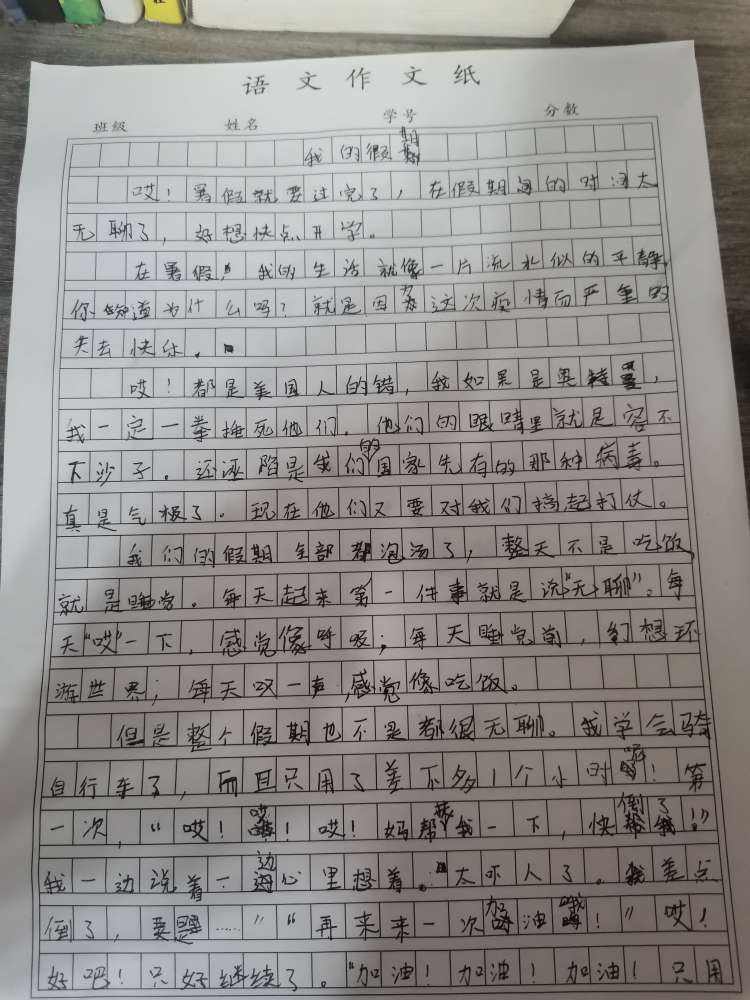 语文作文纸
班级 姓名 学号 分数
我的假期
哎！暑假就要过完了，在假期间的时间太
无聊了，好想快点开学。
在暑假，我的生活就像一片流水似的平静。
你知道为什么吗？就是因为这次疫情而严重的
失去快乐。
哎！都是美国人的错，我如果是奥特曼，
我一定一拳捶死他们，他们的眼睛里就是容不
下沙子。还诬陷是我们的国家先有的那种病毒。
真是气极了。现在他们又要对我们搞起打仗。
我们的假期全部都泡汤了，整天不是吃饭
就是睡觉。每天起来第一件事就是说“无聊”。每
天“哎”一下，感觉像呼吸；每天睡觉前，幻想环
游世界；每天叹一声，感觉像吃饭。
但是整个假期也不是都很无聊。我学会骑
自行车了，而且只用了差不多1个小时呢！第
一次，“哎！哎！哎！妈帮我一下，快倒了！”
我一边说着一边心里想着。太吓人了。我差点
倒了，要是……”“再来来一次加油哦！”哎！
好吧！只好继续了。“加油！加油！加油！只用